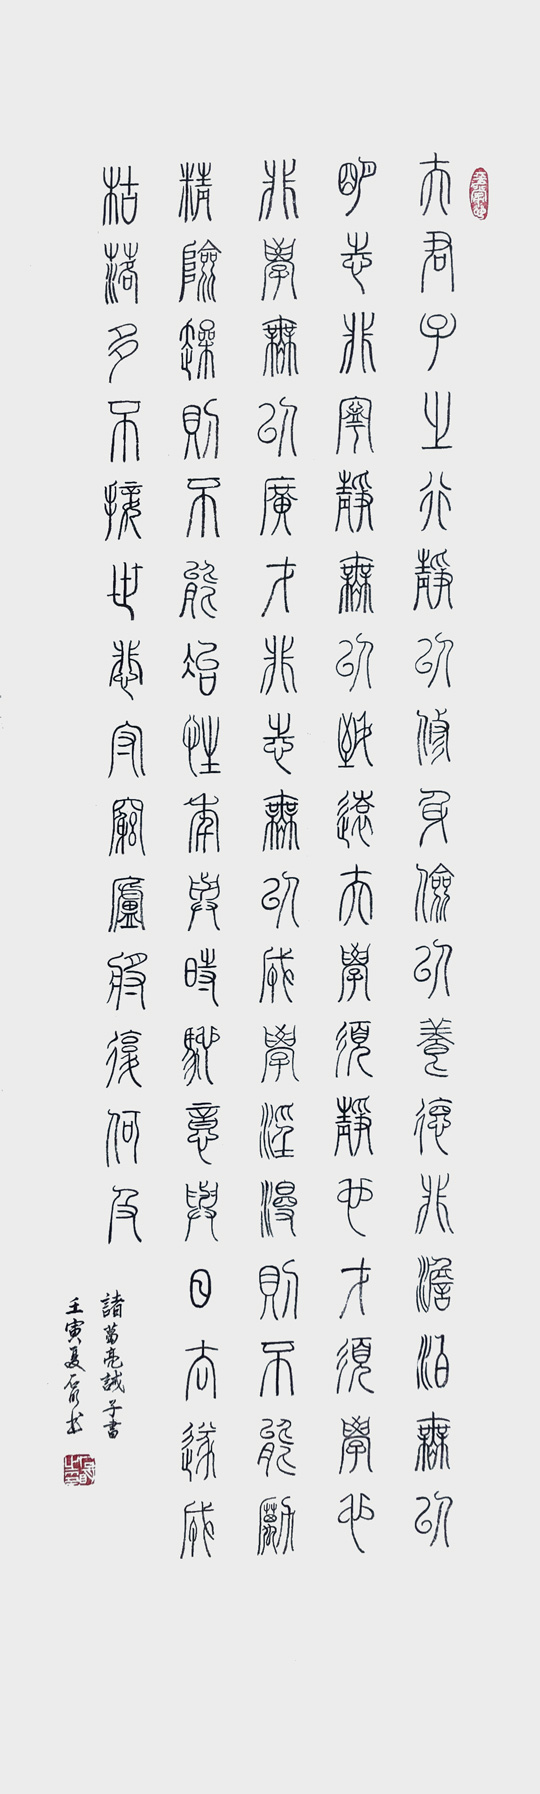 夫君子之行靜以修身儉以養德非澹泊無以
明志非寧靜無以致遠夫學須靜也才須學也
非學無以廣才非志無以成學淫漫則不能勵
精險躁則不能治性年與時馳意與日去遂成
枯落多不接世悲守窮廬將復何及
諸葛亮誡子書
壬寅夏石心書